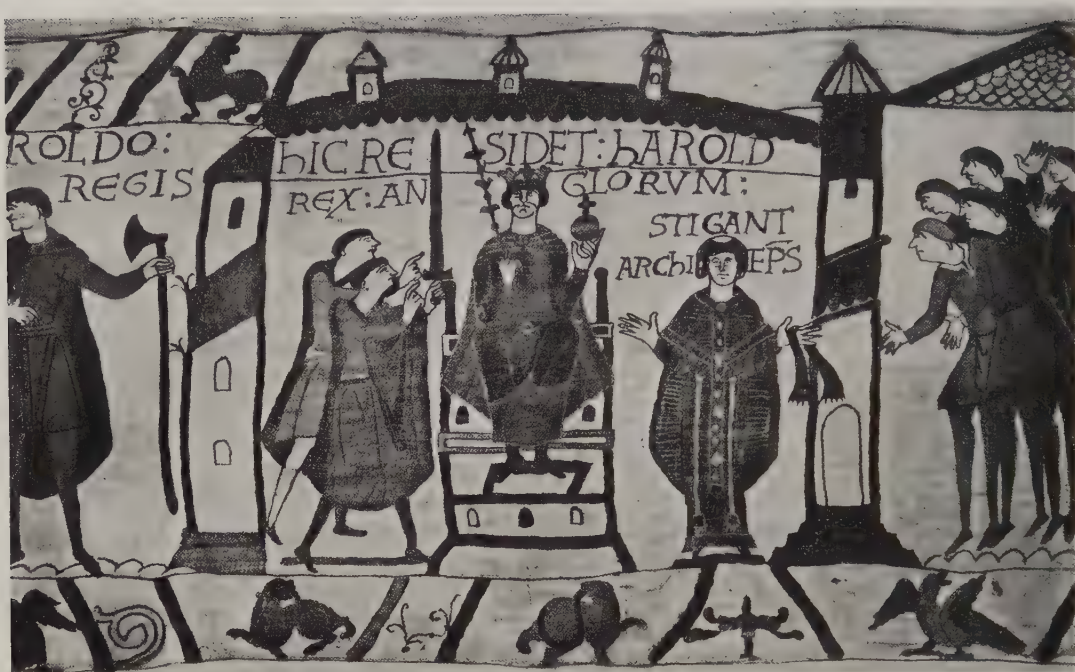 ROLDO:
REGIS
hIC RE SIDET: hAROLD
REX: AN GLORVM:
STIGANT
ARChI EP̄S